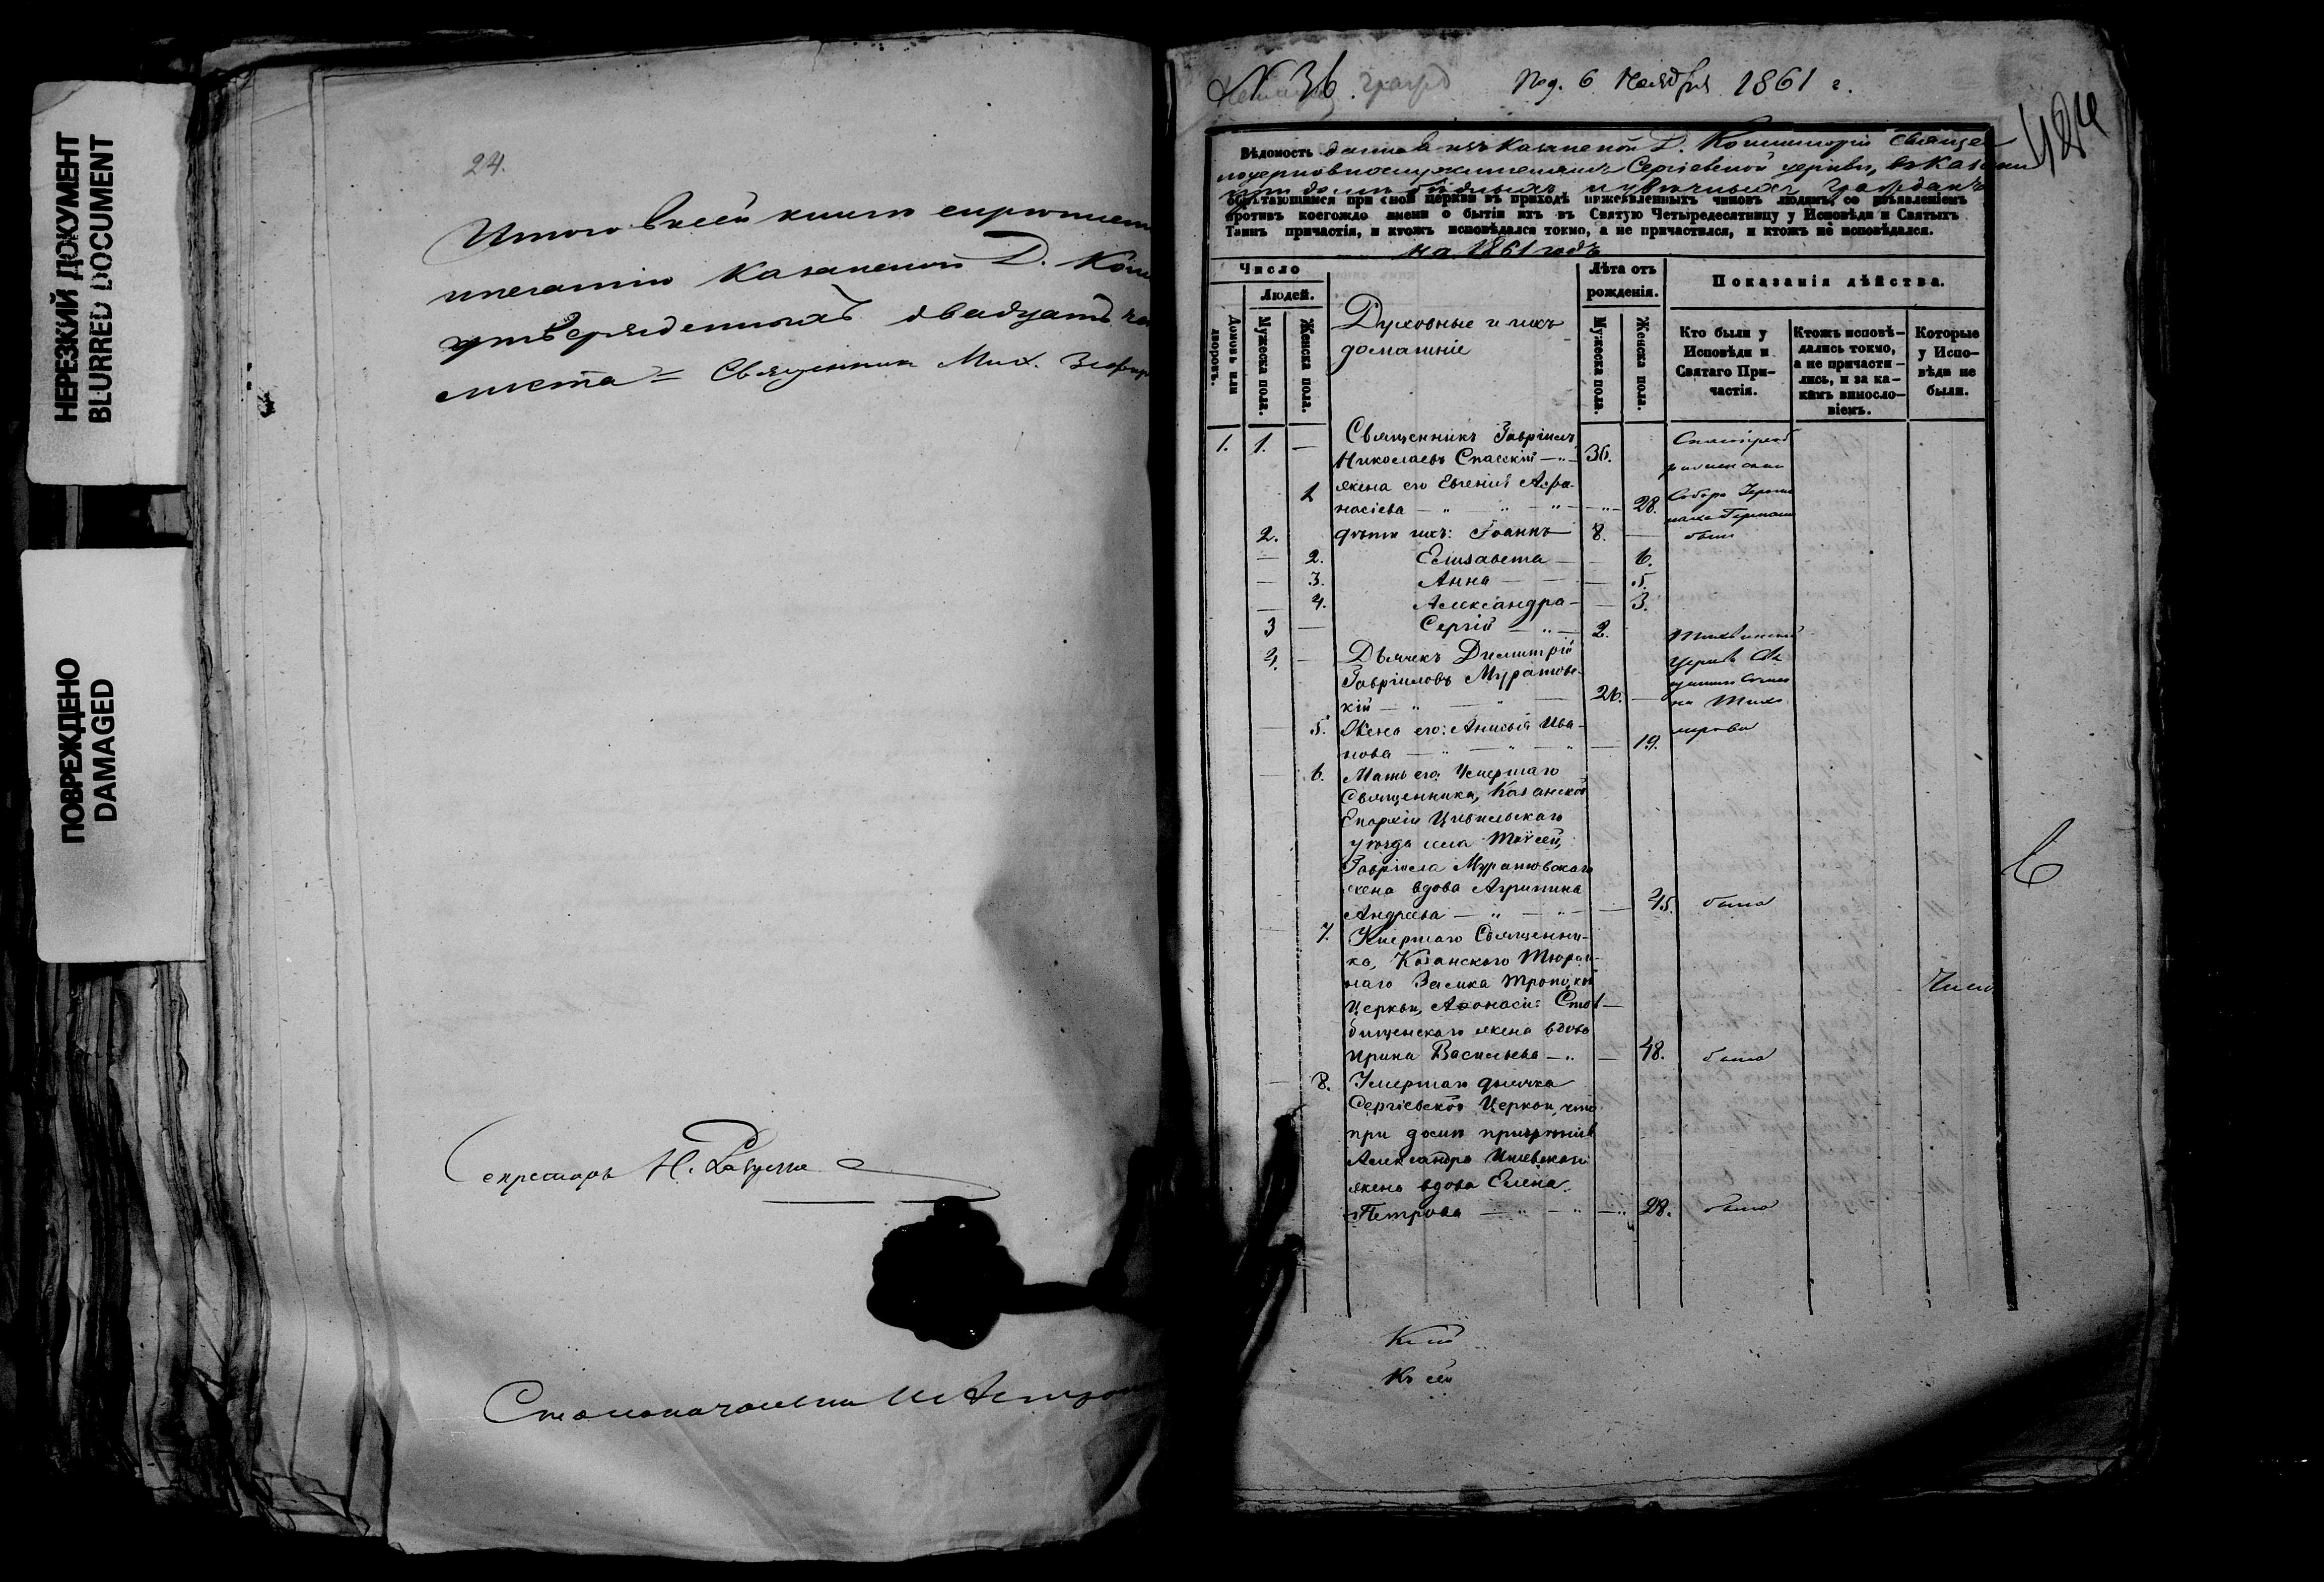 НЕРЕЗКИЙ ДОКУМЕНТ
BLURRED DOCUMENT
ПОВРЕЖДЕНО
DAMAGED
24.
Итого в сей книге скрепленн
и печатию Казанской Д. Кон
утвержденныхъ двадцать че
листа = Священникъ Мих. Зефир
Секретарь Н.
Столоначальникъ
№ 36 Под. 6 Ноября 1861 г.
424
Вѣдомость данная изъ Казанской Д. Консисторіи священно
церковнослужителямъ Сергіевской церкви, въ Казани
при домѣ бѣдныхъ и увѣчныхъ гражданъ
обрѣтающимся при сной церкви въ приходѣ нижеявленныхъ чиновъ людямъ, со изъявленіемъ
противъ коегождо имени о бытіи ихъ въ Святую Четыредесятницу у Исповѣди и Святыхъ
Таинъ причастія, и ктожъ исповѣдался токмо, а не причастился, и ктожъ не исповѣдался.
на 1861 годъ
Число
Людей.
Домовъ или дворовъ.
Мужеска пола.
Женска пола.
Духовные и ихъ
домашніе
Лѣта отъ
рожденія.
Мужеска пола.
Женска пола.
Показанія дѣйства.
Кто были у
Исповѣди и
Святаго При-
частія.
Ктожъ исповѣ-
дались токмо,
а не причасти-
лись, и за ка-
кимъ винословіемъ.
Которые
у Испо-
вѣди не
были.
1. 1. — Священникъ Гавріилъ
Николаевъ Спасскій — 36.
1 жена его Евгенія Афа-
насіева — 28. Собора
2. дѣти ихъ: Іоаннъ 8. — были
— 2. Елизавета — — 6.
— 3. Анна — — 5.
— 4. Александра — — 3.
3 — Сергій — 2.
4. — Дьячекъ Димитрій
Гавріиловъ Муратовс-
кій — 26. —
— 5. Жена его: Анисья Ива-
нова — — 19.
— 6. Мать его: Умершаго
Священника, Казанской
Епархіи Цивильскаго
уѣзда села
Гавріила Муратовскаго
жена вдова Агрипина
Андреева — — 45. была
— 7. Умершаго Священни-
ка, Казанскаго Тюрем-
наго Замка Троицкой
Церкви, Афонасія Стол-
бищенскаго жена вдова
Ирина Васильева — — 48. была
— 8. Умершаго дьячка
Сергіевской Церкви, что
при домѣ призрѣнія
Александра
жена вдова Елена
Петрова — — 28. была
Къ сей